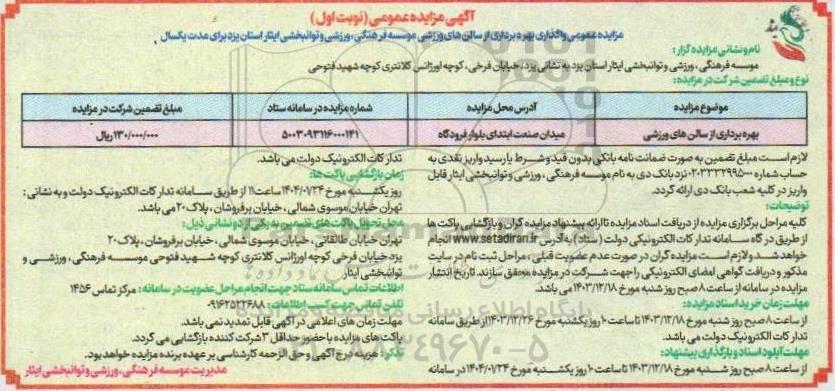 آگهی مزایده عمومی (نوبت اول)
مزایده عمومی واگذاری بهره برداری از سالن های ورزشی موسسه فرهنگی، ورزشی و توانبخشی ایثار استان یزد برای مدت یکسال
نام و نشانی مزایده گزار:
موسسه فرهنگی، ورزشی و توانبخشی ایثار استان یزد به نشانی یزد، خیابان فرخی، کوچه اورژانس کلانتری کوچه شهید فتوحی
نوع و مبلغ تضمین شرکت در مزایده:
موضوع مزایده	آدرس محل مزایده	شماره مزایده در سامانه ستاد	مبلغ تضمین شرکت در مزایده
بهره برداری از سالن های ورزشی	میدان صنعت ابتدای بلوار فرودگاه	۵۰۰۳۰۹۳۱۱۶۰۰۰۱۴۱	۱۳۰/۰۰۰/۰۰۰ ریال
لازم است مبلغ تضمین به صورت ضمانت نامه بانکی بدون قید و شرط یا رسید واریز نقدی به
حساب شماره ۰۲۰۳۳۳۲۹۹۵۰۰۰ نزد بانک دی به نام موسسه فرهنگی، ورزشی و توانبخشی ایثار قابل
واریز در کلیه شعب بانک دی ارائه گردد.
توضیحات:
کلیه مراحل برگزاری مزایده از دریافت اسناد مزایده تا ارائه پیشنهاد مزایده گران و بازگشایی پاکت ها
از طریق درگاه سامانه تدارکات الکترونیکی دولت (ستاد) به آدرس www.setadiran.ir انجام
خواهد شد و لازم است مزایده گران در صورت عدم عضویت قبلی، مراحل ثبت نام در سایت
مذکور و دریافت گواهی امضای الکترونیکی را جهت شرکت در مزایده محقق سازند. تاریخ انتشار
مزایده در سامانه از ساعت ۸ صبح روز شنبه مورخ ۱۴۰۳/۱۲/۱۸ می باشد.
مهلت زمان خرید اسناد مزایده:
از ساعت ۸ صبح روز شنبه مورخ ۱۴۰۳/۱۲/۱۸ تا ساعت ۱۰ روز یکشنبه مورخ ۱۴۰۳/۱۲/۲۶ از طریق سامانه
تدارکات الکترونیک دولت می باشد.
مهلت آپلود اسناد و بارگذاری پیشنهاد:
از ساعت ۸ صبح روز شنبه مورخ ۱۴۰۳/۱۲/۱۸ تا ساعت ۱۰ روز یکشنبه مورخ ۱۴۰۴/۰۱/۲۴ در سامانه
تدارکات الکترونیک دولت می باشد.
زمان بازگشایی پاکت ها:
روز یکشنبه مورخ ۱۴۰۴/۰۱/۲۴ ساعت ۱۱ از طریق سامانه تدارکات الکترونیک دولت و به نشانی:
تهران خیابان موسوی شمالی، خیابان برفروشان، پلاک ۲۰ می باشد.
محل تحویل پاکت های تضمین به یکی از دو نشانی ذیل:
تهران خیابان طالقانی، خیابان موسوی شمالی، خیابان برفروشان، پلاک ۲۰
یزد خیابان فرخی کوچه اورژانس کلانتری کوچه شهید فتوحی موسسه فرهنگی، ورزشی و
توانبخشی ایثار
اطلاعات تماس سامانه ستاد جهت انجام مراحل عضویت در سامانه: مرکز تماس ۱۴۵۶
تلفن تماس جهت کسب اطلاعات: ۰۹۱۶۲۵۲۲۶۸۸
مهلت زمان های اعلامی در آگهی قابل تمدید نمی باشد.
پاکت های مزایده با حضور حداقل ۳ شرکت کننده بازگشایی می گردد.
تذکر: هزینه درج آگهی و حق الزحمه کارشناسی بر عهده برنده مزایده خواهد بود.
مدیریت موسسه فرهنگی، ورزشی و توانبخشی ایثار